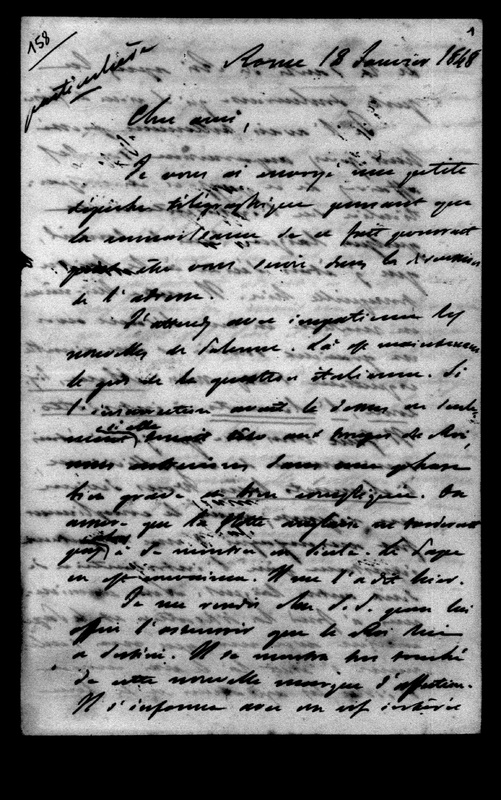 158
1
particulière
Rome 18 Janvier 1848
Cher ami,
Je vous ai envoyé une petite
dépêche télégraphique pensant que
la connaissance de ce fait pourrait
peut-être vous servir dans la discussion
de l'adresse.
J'attends avec impatience les
nouvelles de Palerme. Là est maintenant
le gros de la question italienne. Si
l'insurrection avait le dessus ou seule-
ment si elle tenait tête aux troupes du Roi,
nous entrerions dans une phase
très grave et très compliquée. On
assure que la flotte anglaise ne tarderait
pas à se montrer en Sicile. Le Pape
en est convaincu. Il me l'a dit hier.
Je me rendis chez S. S. pour lui
offrir que le Roi lui
a destiné. Il se montra très touché
de cette nouvelle marque d'affection.
Il s'informa avec un vif intérêt